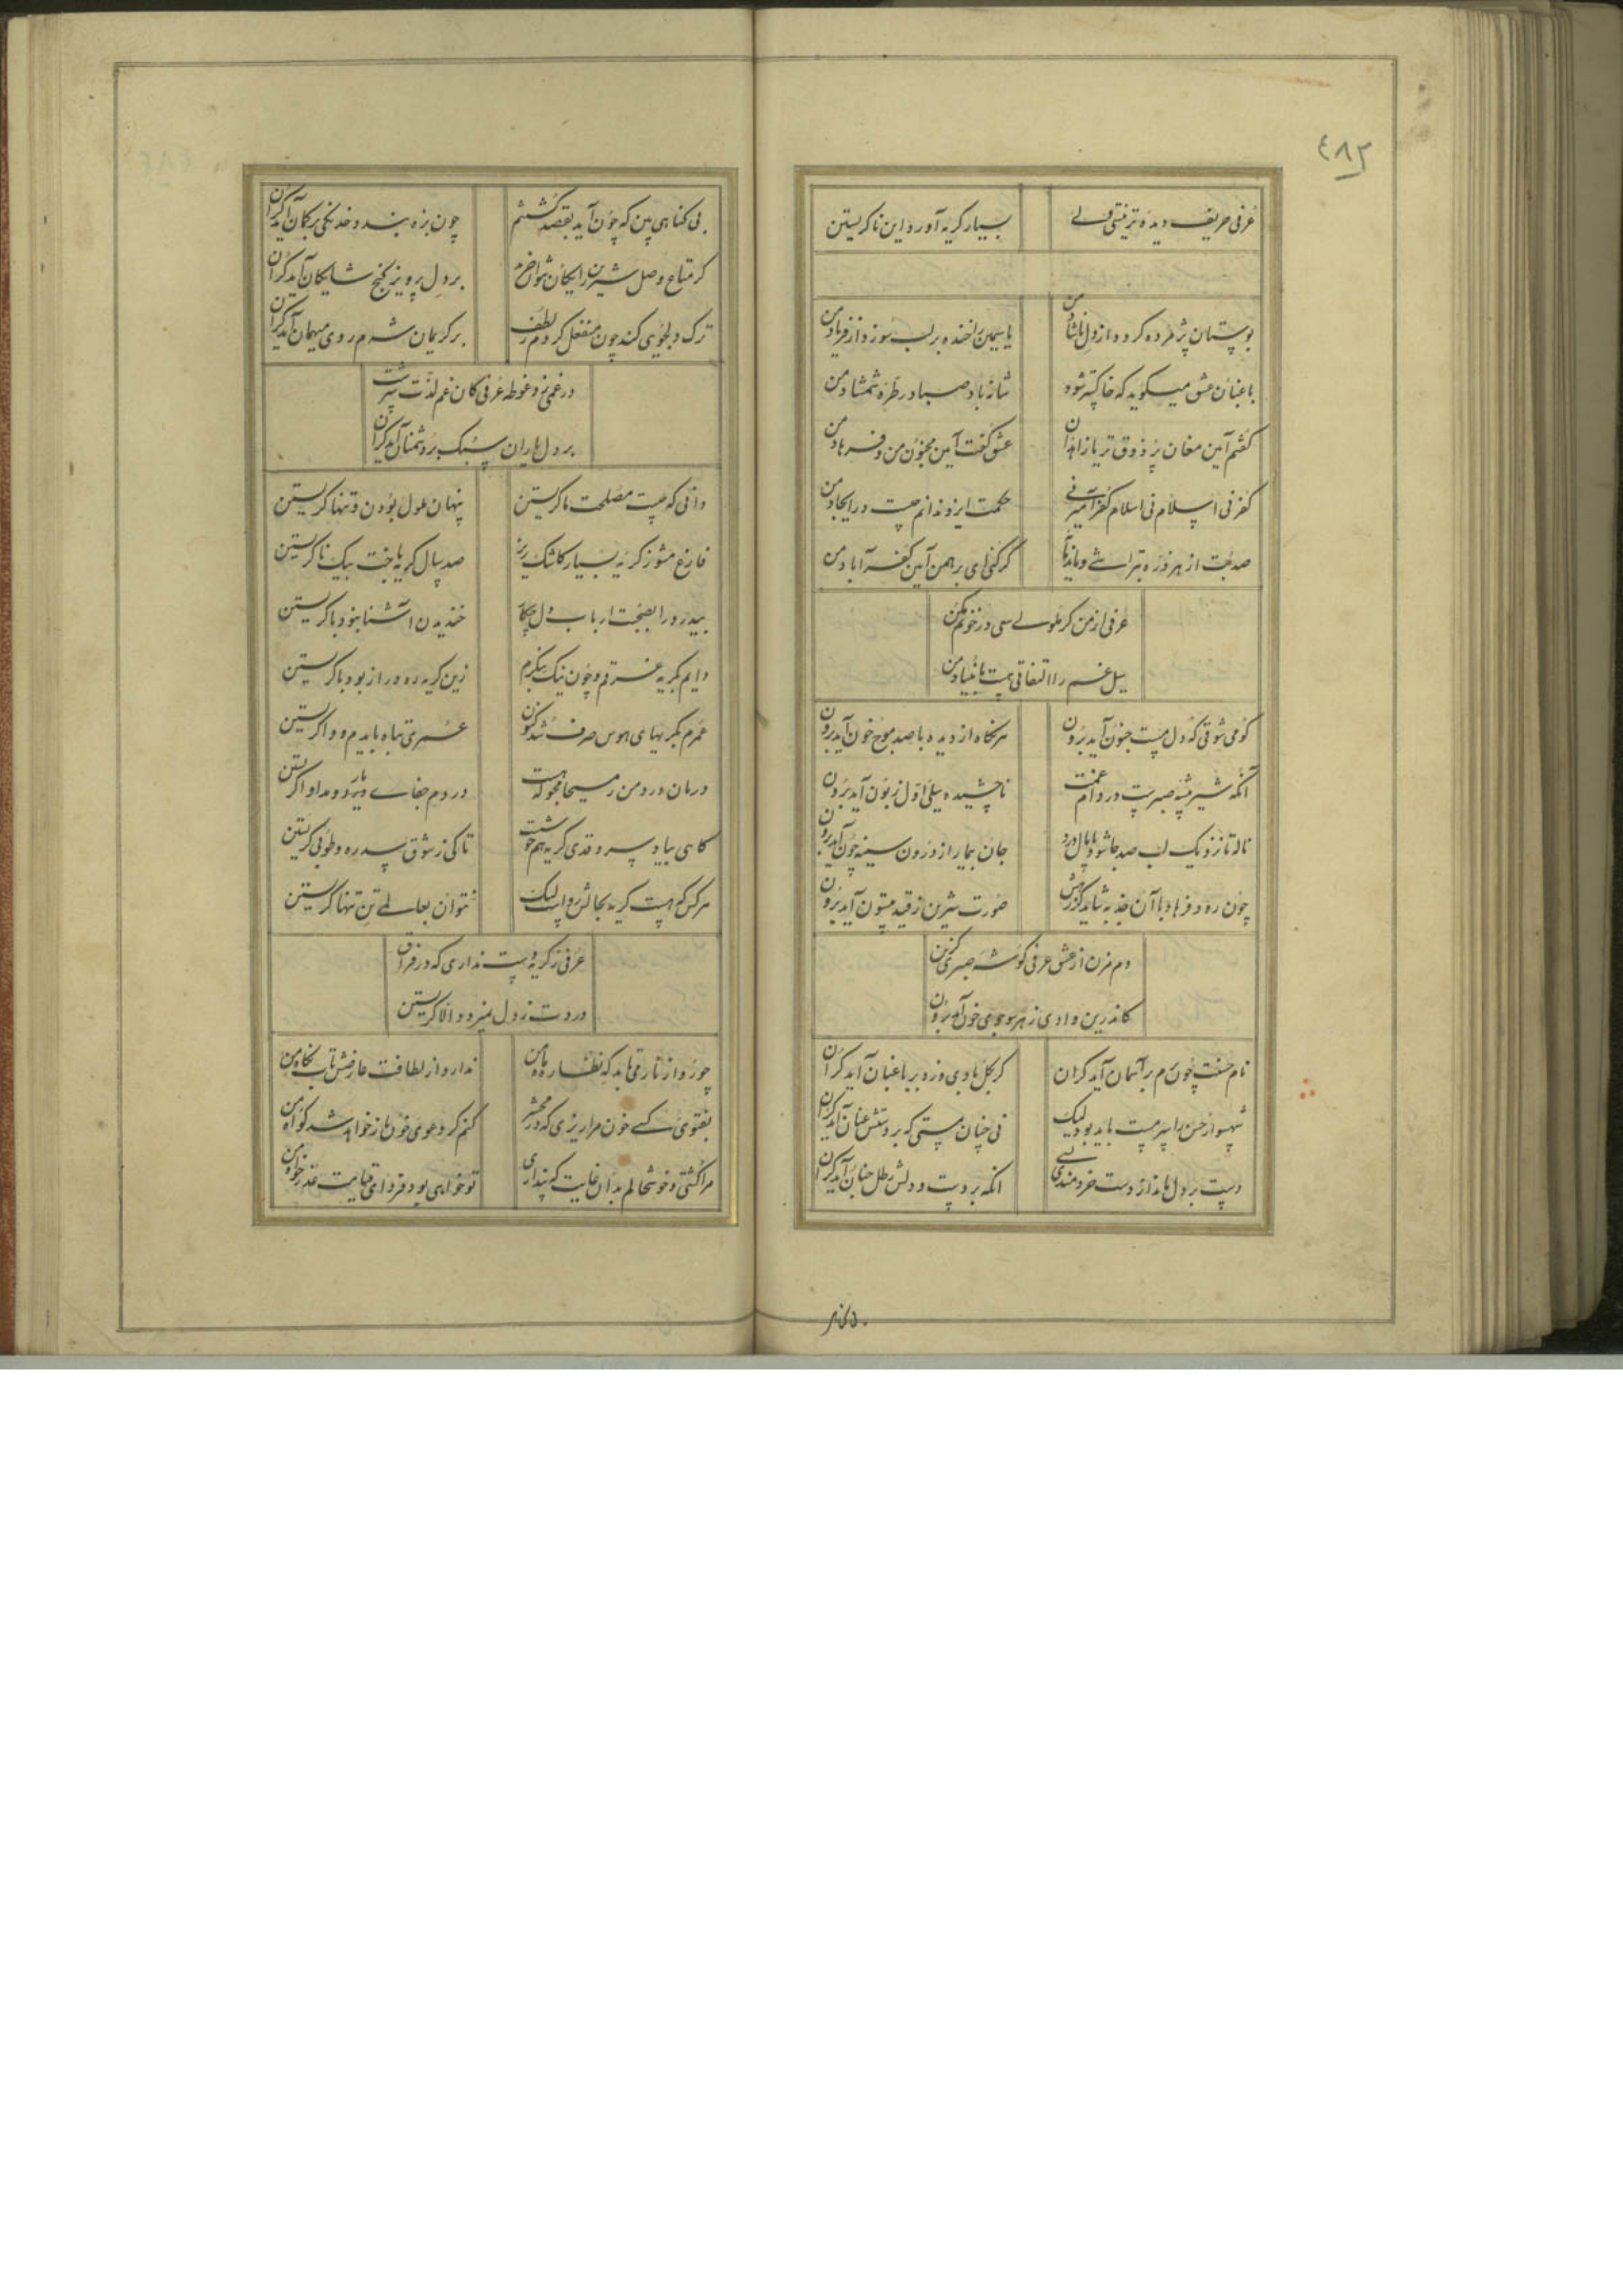 ٤٨٢
عرفی حریف دیده تر نیستی ولے
بسیار گریه آورد این ناگریستن
بوستان پژمرده گردد از دل ناشاد من
یاسمین را خنده بر لب سوزد از فریاد من
باغبان عشق میگوید که خاکستر شود
شاز باد صبا در طره شمشاد من
گفتم آیین مغان پر ذوق تر یا زاهدان
عشق گفت آیین مجنون من و فرهاد من
کفر نی اسلام نی اسلام کفر آمیز نے
حکمت ایزد ندانم چیست در ایجاد من
صد بت از هر ذره بتراشے و
گر کنی ای برهمن آیین کفر آباد من
عرفی از من گر ملولے سعی در خونم مکن
سیل غم را التفاتی هست با بنیاد من
کو می شوقی که دل مست جنون آید برون
هر نگاه از دیده با صد موج خون آید برون
آنکه شیر بیشه صبرست در دام غمت
ناچشیده سیلی اول زبون آید برون
ناله تا نزدیک لب صد جا شود پامال درد
جان بیمار از درون سینه چون آید برون
چون رود فرهاد با آن جذبه شاید کز رهش
صورت شیرین ز قید بیستون آید برون
دم مزن از عشق عرفی گوشه صبری گزین
کاندرین وادی ز هر سو جوی خون آید برون
نام حسنت چون برم بر آسمان آید گران
گر بگل بادی وزد بر باغبان آید گران
شهسوار حسن را سرمست باید بود لیک
نی چنان مستی که بر دستش عنان آید گران
دست بر دل ماند از دست خردمندی کسے
آنکه بر دست و دلش رطل آید گران
بی گناهی بین که چون آید بقصد کشتنم
چون بزه بندد خدنگی بر کمان آید گران
گر متاع وصل شیرین رایگان نتوان خرید
بر دل پرویز گنج شایگان آید گران
ترک دلجویی کند چون منفعل گردم ز لطف
بر کریمان شرم روی میهمان آید گران
در غمی زد غوطه عرفی کان غم لذت سرشت
بر دل یاران سبک بر دشمنان آید گران
دانی که چیست مصلحت ما گریستن
پنهان ملول بودن و تنها گریستن
فارغ مشو ز گریه بسیار کاشک ریز
صد سال گریه باخت بیک ناگریستن
بیدرد را بصحبت ارباب دل چکار
خندیدن آشنا بنود با گریستن
دایم بگریه غرقم و چون نیک بنگرم
زین گریه ره دراز بود با گریستن
عمرم بگریهای هوس صرف شد کنون
عمری تباه بایدم و وا گریستن
درمان درد من ز مسیحا مجو که هست
دردم جفاے یار و مداوا گریستن
گاهی بیاد سرو قدی گریه هم خوشست
تا کی ز شوق سدره و طوبی گریستن
هر کس که هست گریه بحالش رواست لیک
نتوان بعالمے تن تنها گریستن
عرفی ز گریه دست نداری که در فراق
دردت ز دل نمیرود الا گریستن
چو زد از ناز می تابد که نظاره ماه من
ندارد از لطافت عارضش تاب نگاه من
بفتوی کسے خون مرا ریزی که در محشر
کنم گر دعوی خون باز خواهد شد گواه من
مرا کشتی و خوشحالم بدان غایت که پنداری
تو خواهی بود فردای قیامت عذر خواه من